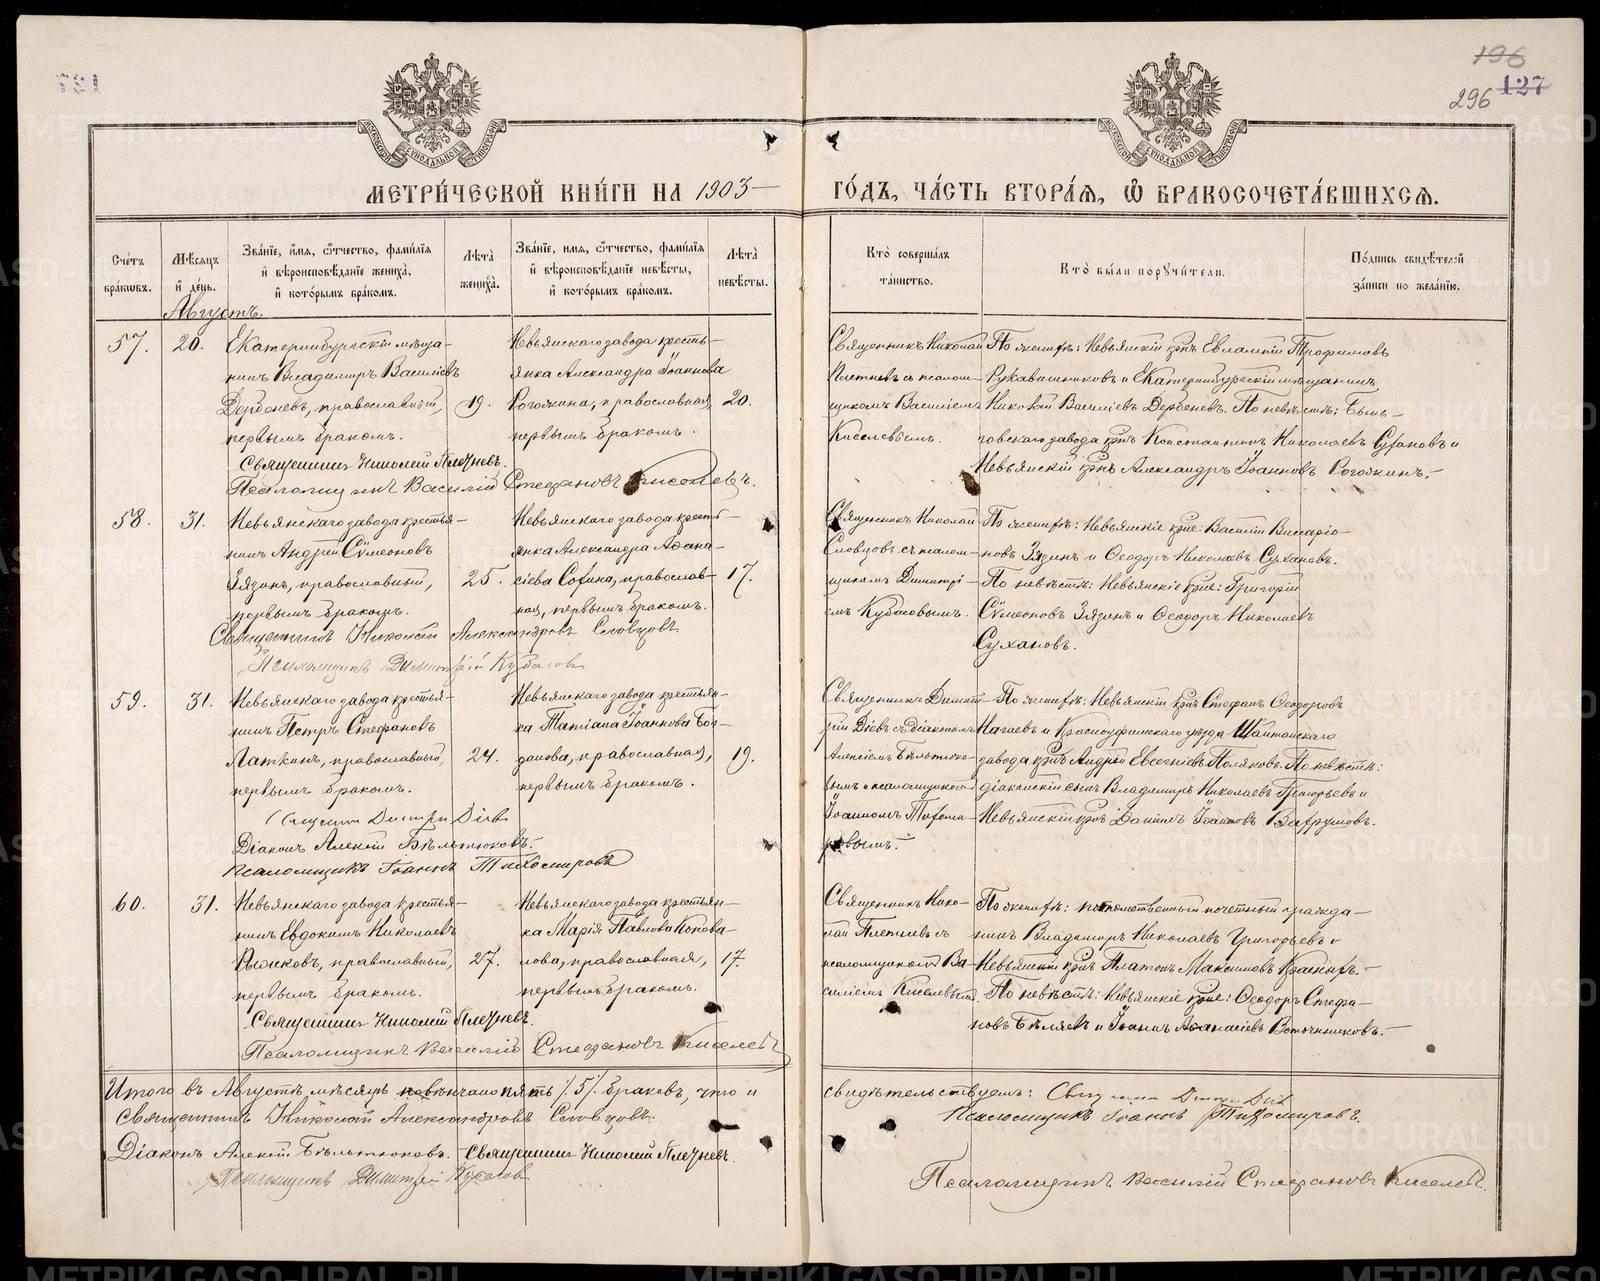 196
296 127
МЕТРИ́ЧЕСКОЙ КНИ́ГИ НА 1903 ГО́ДЪ, ЧА́СТЬ ВТОРА́Я, Ѽ БРАКОСОЧЕТА́ВШИХСѦ.
Сче́тъ бра́кѡвъ.
Мѣ́сяцъ и де́нь.
Зва́нїе, и́мя, ѻ́тчество, фами́лїя и вѣроисповѣ́данїе жениха̀, и кото́рымъ бра́комъ.
Лѣта̀ жениха̀.
Зва́нїе, и́мя, ѻ́тчество, фами́лїя и вѣроисповѣ́данїе невѣ́сты, и кото́рымъ бра́комъ.
Лѣта̀ невѣ́сты.
Кто̀ соверша́лъ та́инство.
Кто̀ бы́ли порꙋчи́тели.
По́дпись свидѣ́телей за́писи по жела́нїю.
Августъ.
57.
20.
Екатеринбургскій мѣща-
нинъ Владиміръ Василіевъ
Дербеневъ, православный,
первымъ бракомъ.
19.
Невьянскаго завода кресть-
янка Александра Іоаннова
Рогожина, православная,
первымъ бракомъ.
20.
Священникъ Николай
Плетневъ съ псалом-
щикомъ Василіемъ
Киселевымъ.
По женихѣ: Невьянскій крн҃ъ Евлампій Трофимовъ
Рукавишниковъ и Екатеринбургскій мѣщанинъ
Николай Василіевъ Дербеневъ. По невѣстѣ: Бынь-
говскаго завода крн҃ъ Константинъ Николаевъ Сухановъ и
Невьянскій крн҃ъ Александръ Іоанновъ Рогожинъ.-
Священникъ Николай Плетневъ.
Псаломщикъ Василій Стефановъ Киселевъ.
58.
31.
Невьянскаго завода крестья-
нинъ Андрей Сѵмеоновъ
Зязинъ, православный,
первымъ бракомъ.
25.
Невьянскаго завода кресть-
янка Александра Аѳана-
сіева Софина, православ-
ная, первымъ бракомъ.
17.
Священникъ Николай
Словцовъ съ псалом-
щикомъ Димитрі-
емъ Кубасовымъ.
По женихѣ: Невьянскіе крне: Василій Виссаріо-
новъ Зязинъ и Ѳеодоръ Николаевъ Сухановъ.
По невѣстѣ: Невьянскіе крне: Григорій
Сѵмеоновъ Зязинъ и Ѳеодоръ Николаевъ
Сухановъ.
Священникъ Николай Александровъ Словцовъ.
Псаломщикъ Димитрій Кубасовъ
59.
31.
Невьянскаго завода крестья-
нинъ Петръ Стефановъ
Латкинъ, православный,
первымъ бракомъ.
24.
Невьянскаго завода крестьян-
ка Татіана Іоаннова Бог-
данова, православная,
первымъ бракомъ.
19.
Священникъ Димит-
рій Діевъ съ діакономъ
Алексіемъ Бѣльтюко-
вымъ и псаломщикомъ
Іоанномъ Тихоми-
ровымъ.-
По женихѣ: Невьянскій крн҃ъ Стефанъ Ѳеодоровъ
Нагаевъ и Красноуфимскаго уѣзда Шайтанскаго
завода крн҃ъ Андрей Евсегніевъ Поляковъ. По невѣстѣ:
діаконскій сынъ Владиміръ Николаевъ Григорьевъ и
Невьянскій крн҃ъ Даніилъ Іоанновъ Вахрумовъ.
Священникъ Димитрій Діевъ
Діаконъ Алексій Бѣльтюковъ.
Псаломщикъ Іоаннъ Тихомировъ
60.
31.
Невьянскаго завода крестья-
нинъ Евдокимъ Николаевъ
Рыжковъ, православный,
первымъ бракомъ.
27.
Невьянскаго завода крестьян-
ка Марія ПавловаКонова-
лова, православная,
первымъ бракомъ.
17.
Священникъ Нико-
лай Плетневъ съ
псаломщикомъ Ва-
силіемъ Киселевымъ.
По женихѣ: потомственный почетный гражда-
нинъ Владиміръ Николаевъ Григорьевъ и
Невьянскій крн҃ъ Платонъ Максимовъ
По невѣстѣ: Невьянскіе крне: Ѳеодоръ Стефа-
новъ Бѣляевъ и Іоаннъ Аѳанасіевъ Воточниковъ.-
Священникъ Николай Плетневъ.
Псаломщикъ Василій Стефановъ Киселевъ
Итого въ Августѣ мѣсяцѣ повѣнчано пять /5/ браковъ, что и свидѣтельствуемъ: Священникъ Димитрій Діевъ
Священникъ Николай Александровъ Словцовъ. Псаломщикъ Іоаннъ Тихомировъ.
Діаконъ Алексій Бѣльтюковъ. Священникъ Николай Плетневъ.
Псаломщикъ Димитрій Кубасовъ Псаломщикъ Василій Стефановъ Киселевъ.
METRIKI.GASO-URAL.RU